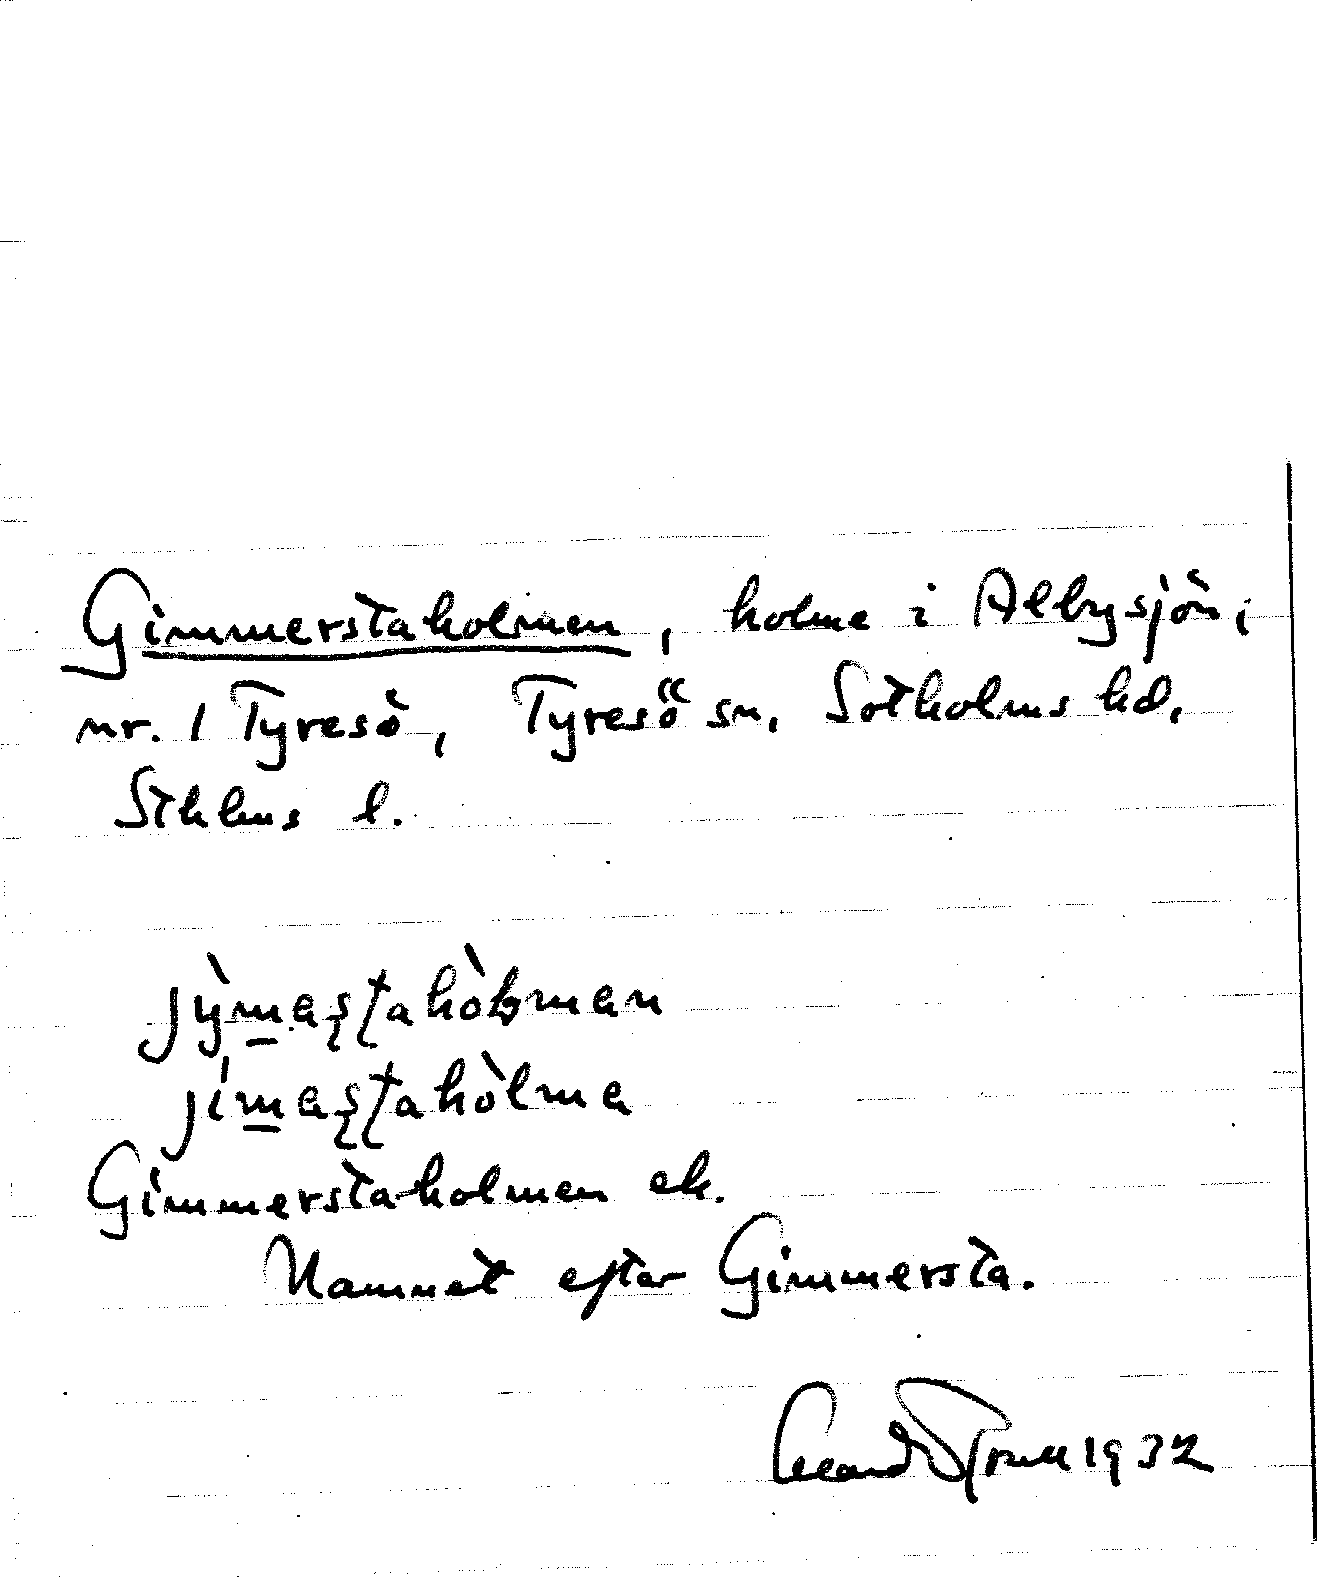 Gimmerstaholmen, holme i Albysjön,
nr. 1 Tyresö, Tyresö sn, Sotholms hd,
Sthlms l.
jỳmas̨ţahòlman
jímas̨ţahòlma
Gimmerstaholmen ek.
Namnet efter Gimmersta.
1932